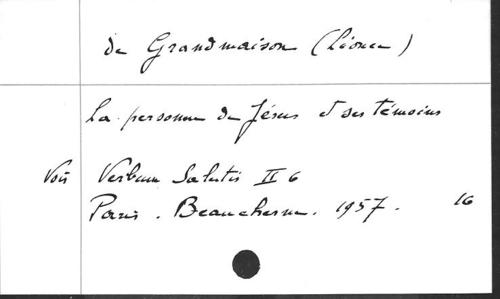 de Grandmaison (Léonce)
La personne de Jésus et ses témoins
Voir Verbum Salutis II 6
Paris. Beauchesne. 1957. 16